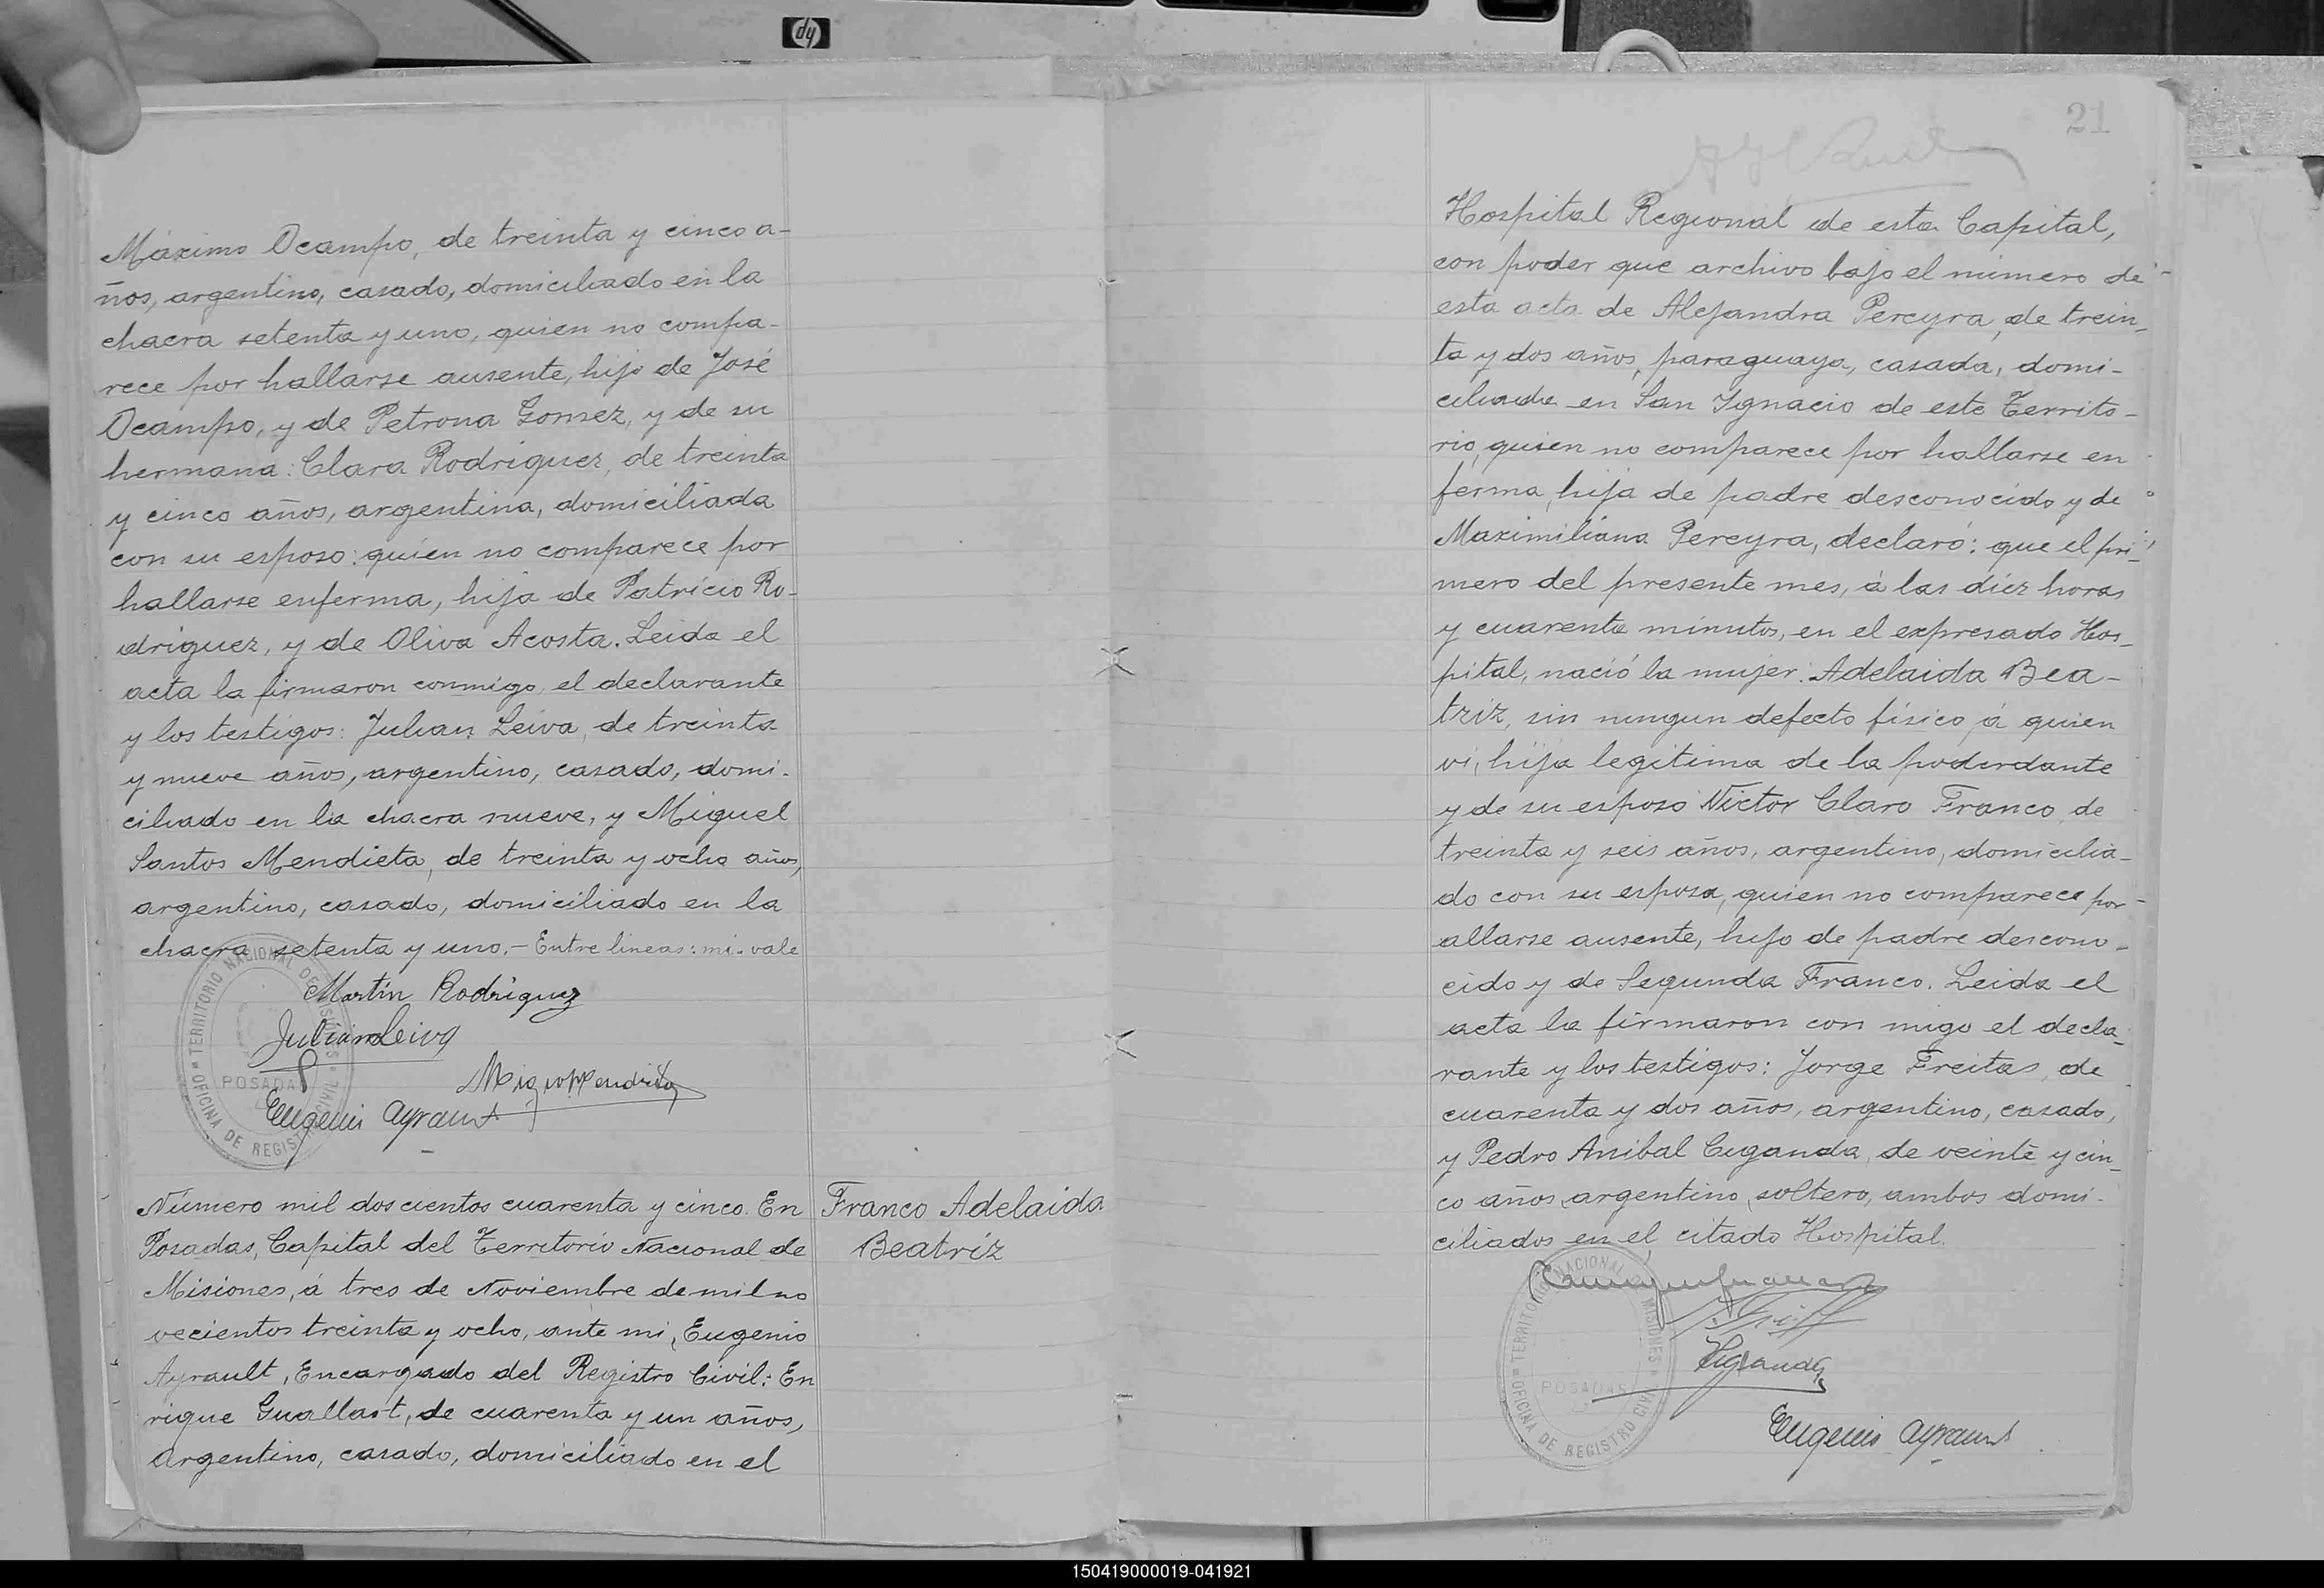 hp
Máximo Ocampo, de treinta y cinco a-
ños, argentino, casado, domiciliado en la
chacra setenta y uno, quien no compa-
rece por hallarse ausente, hijo de José
Ocampo, y de Petrona Gomez, y de su
hermana: Clara Rodriguez, de treinta
y cinco años, argentina, domiciliada
con su esposo: quien no comparece por
hallarse enferma, hija de Patricio Ro-
driguez, y de Oliva Acosta. Leida el
acta la firmaron conmigo, el declarante
y los testigos: Julian Leiva, de treinta
y nueve años, argentino, casado, domi-
ciliado en la chacra nueve, y Miguel
Santos Mendieta, de treinta y ocho años,
argentino, casado, domiciliado en la
chacra setenta y uno.- Entre lineas: mi. vale
Martín Rodriguez
Julian Leiva
Eugenio Ayrault
TERRITORIO NACIONAL DE MISIONES
POSADAS
OFICINA DE REGISTRO CIVIL
Número mil doscientos cuarenta y cinco. En
Posadas, Capital del Territorio Nacional de
Misiones, á tres de Noviembre de mil no
vecientos treinta y ocho, ante mi, Eugenio
Ayrault, Encargado del Registro Civil: En
rique Guallart, de cuarenta y un años,
argentino, casado, domiciliado en el
Franco Adelaida
Beatríz
21
Hospital Regional de esta Capital,
con poder que archivo bajo el número de
esta acta de Alejandra Pereyra, de trein-
ta y dos años, paraguaya, casada, domi-
ciliada en San Ignacio de este Territo-
rio, quien no comparece por hallarse en
ferma, hija de padre desconocido y de
Maximiliana Pereyra, declaró: que el pri-
mero del presente mes, á las diez horas
y cuarenta minutos, en el expresado Hos-
pital, nació la mujer: Adelaida Bea-
triz, sin ningun defecto físico, á quien
vi, hija legitima de la poderdante
y de su esposo Victor Claro Franco, de
treinta y seis años, argentino, domicilia-
do con su esposa, quien no comparece por
allarse ausente, hijo de padre descono-
cido y de Segunda Franco. Leida el
acta la firmaron con migo el decla-
rante y los testigos: Jorge Freitas, de
cuarenta y dos años, argentino, casado,
y Pedro Anibal Ciganda, de veinte y cin-
co años, argentino, soltero, ambos domi-
ciliados en el citado Hospital.
TERRITORIO NACIONAL DE MISIONES
POSADAS
OFICINA DE REGISTRO CIVIL
Eugenio Ayrault
150419000019-041921